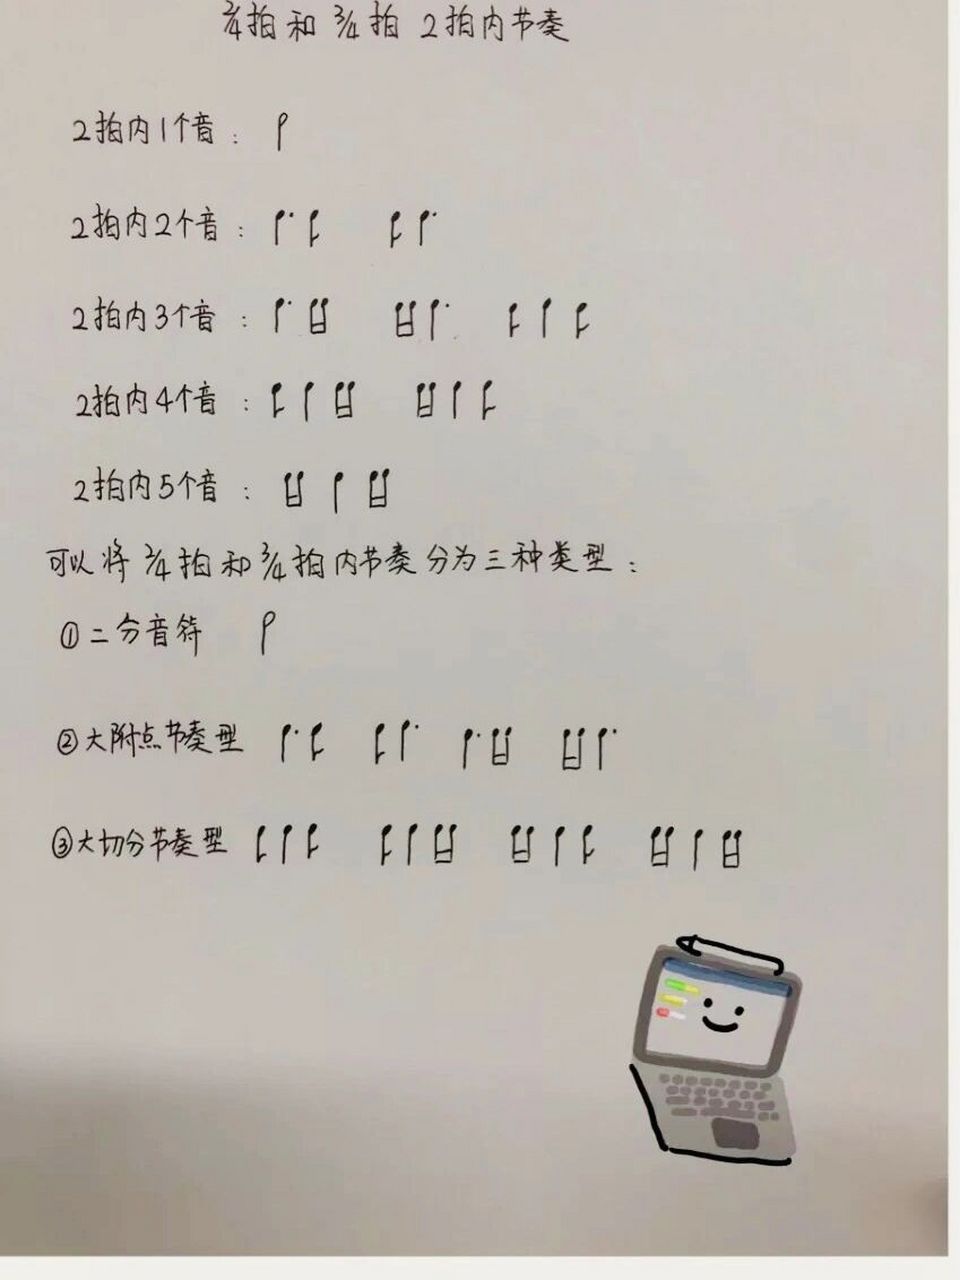 2/4拍和 3/4拍 2拍内节奏
2拍内1个音：
2拍内2个音：
2拍内3个音：
2拍内4个音：
2拍内5个音：
可以将 2/4拍和 3/4拍内节奏分为三种类型：
①二分音符
②大附点节奏型
③大切分节奏型